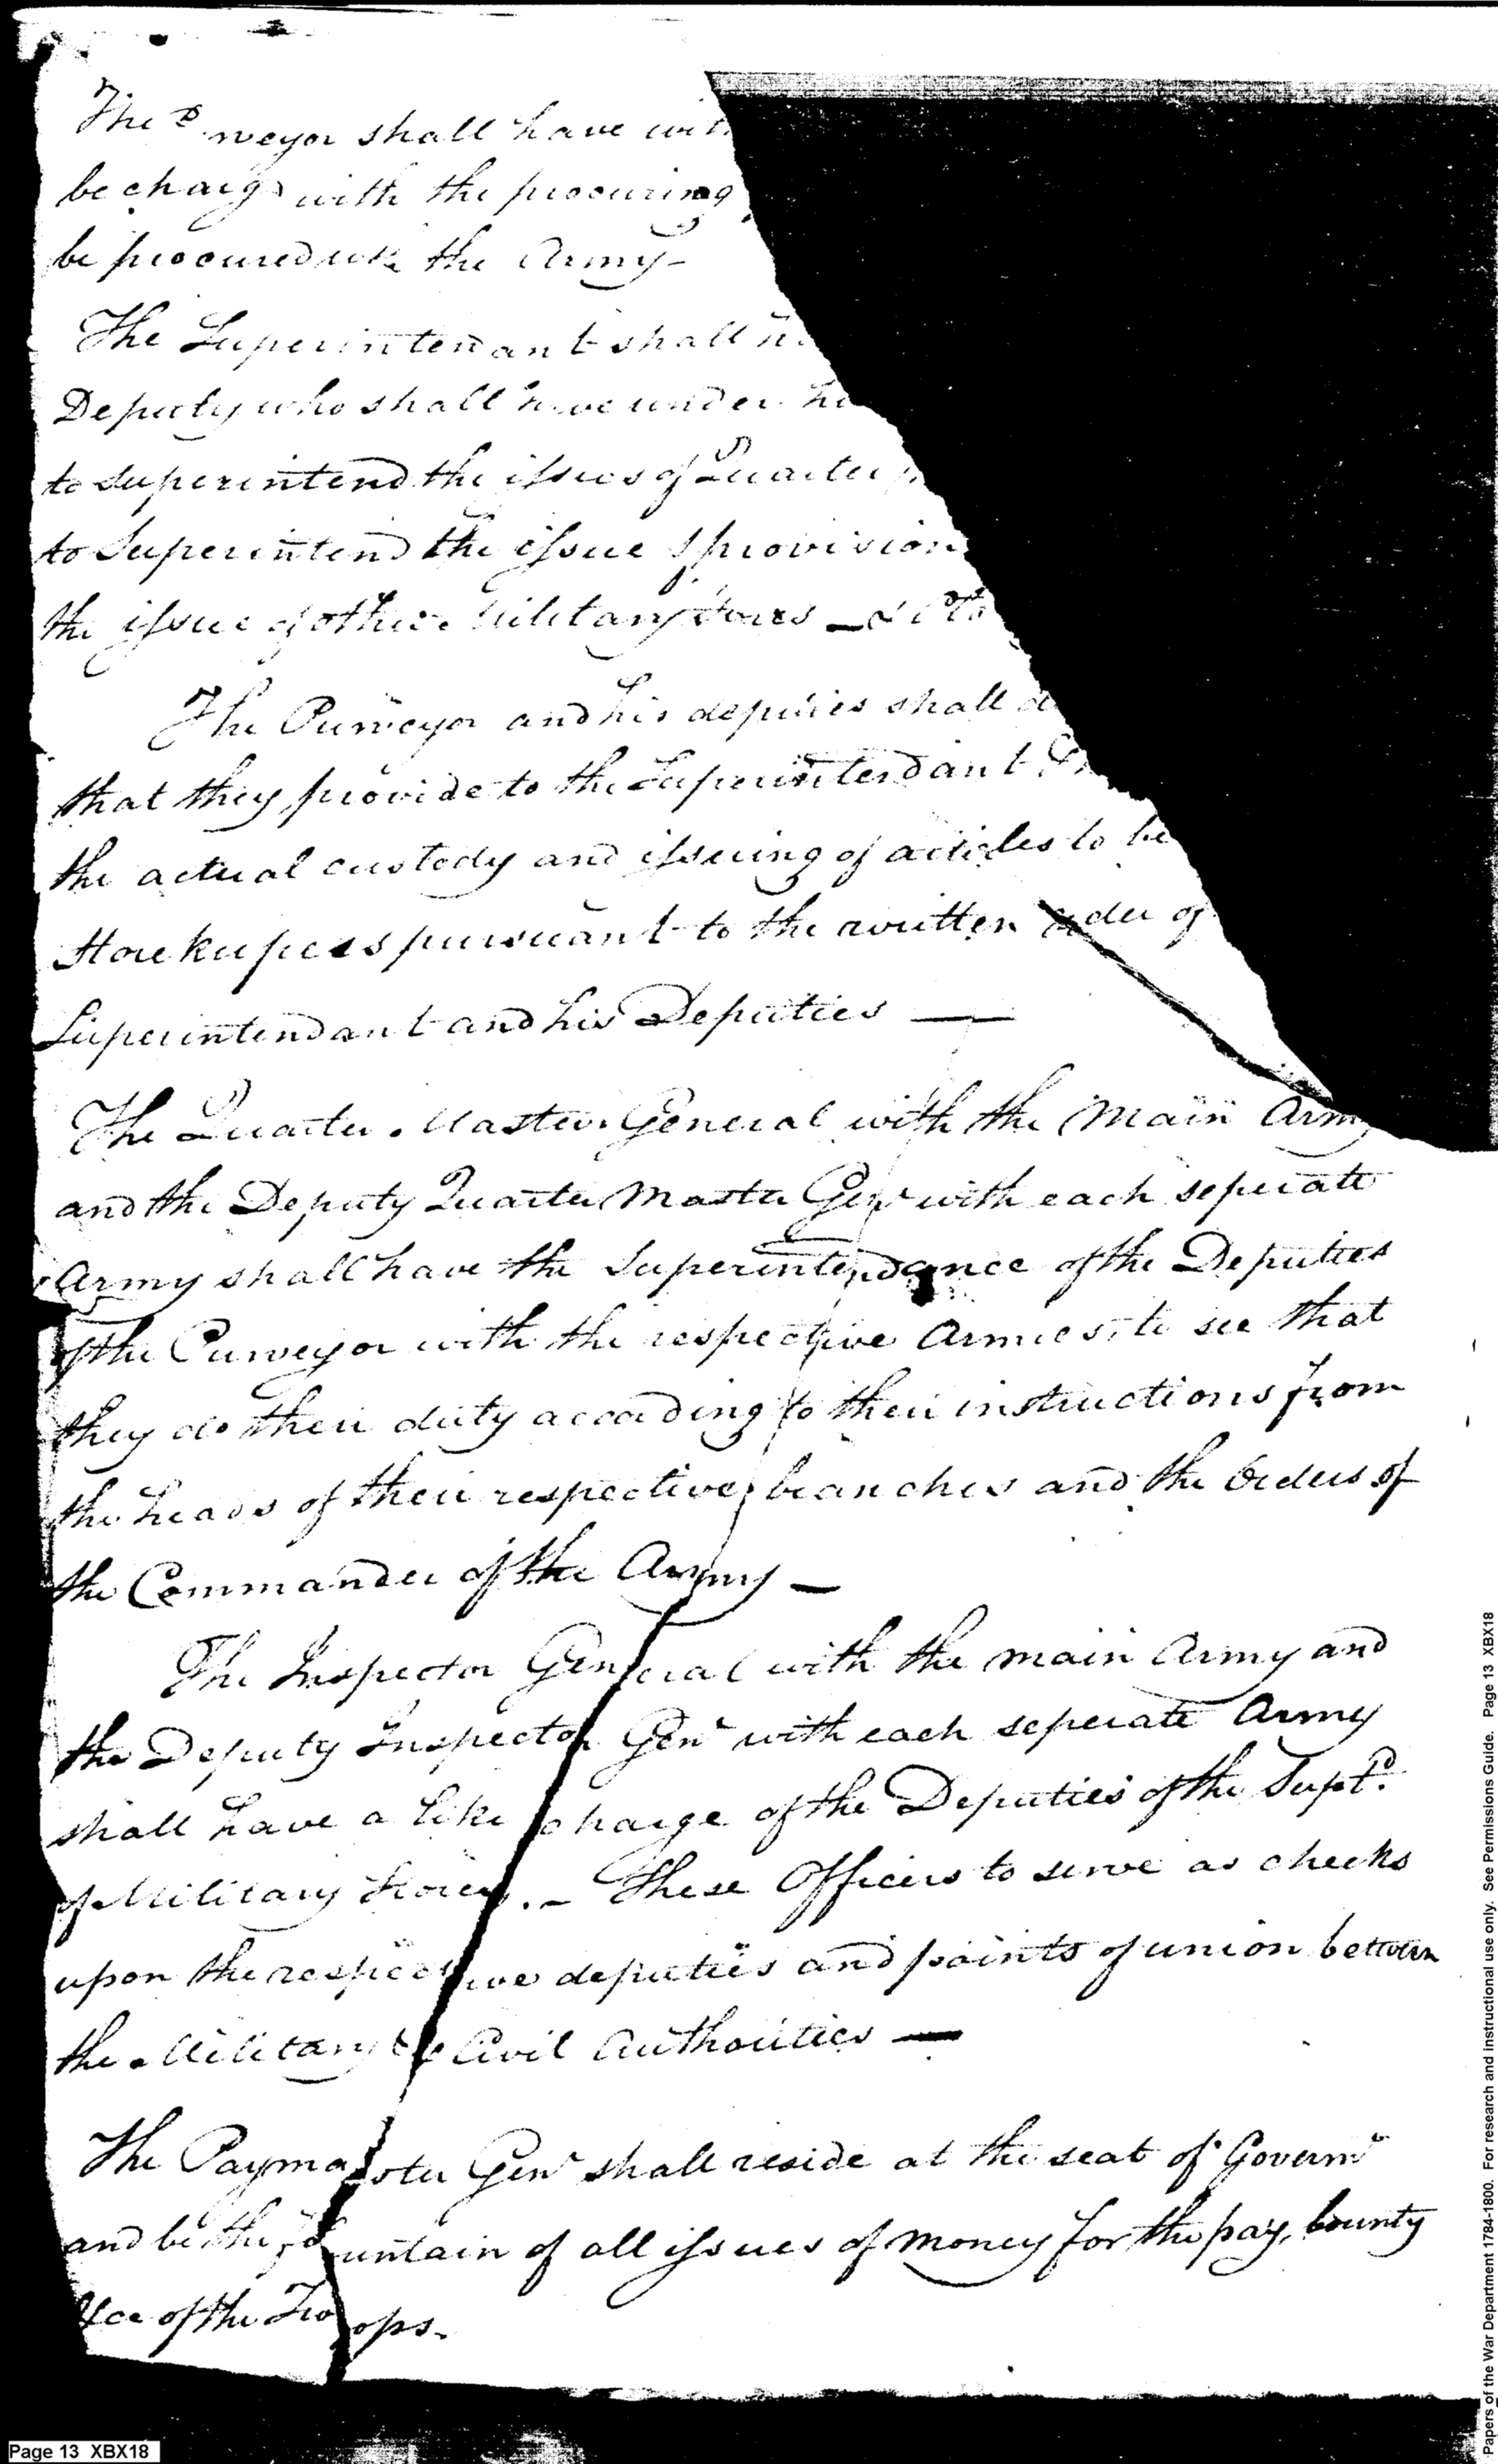 The P veyor shall have with
be charg d with the procuring
be procured with the Army -
The Superintendant shall
Deputy who shall have under
to superintend the issues of Quarter
to Superintend the issue of provision
the issue of other Military Stores -
The Purveyor and his deputies shall
that they provide to the Superintendant
the actual custody and issuing of articles to be
Storekeepers pursuant to the written order of
Superintendant and his Deputies —
The Quarter Master General with the Main Army
and the Deputy Quarter Master Genl with each seperate
Army shall have the Superintendance of the Deputies
of the Purveyor with the respective Armies, to see that
they do their duty according to their instructions from
the heads of their respective branches and the Orders of
the Commander of the Army —
The Inspector General with the main Army and
the Deputy Inspector Genl with each seperate Army
shall have a like charge of the Deputies of the Supt.d
of Military Stores. - These Officers to serve as checks
upon the respective deputies and points of union between
the Military & Civil Authorities —
The Paymaster Genl shall reside at the seat of Governmt
and be the fountain of all issues of money for the pay, bounty
&ca of the Troops.
Page 13 XBX18
Papers of the War Department 1784-1800. For research and instructional use only. See Permissions Guide. Page 13 XBX18